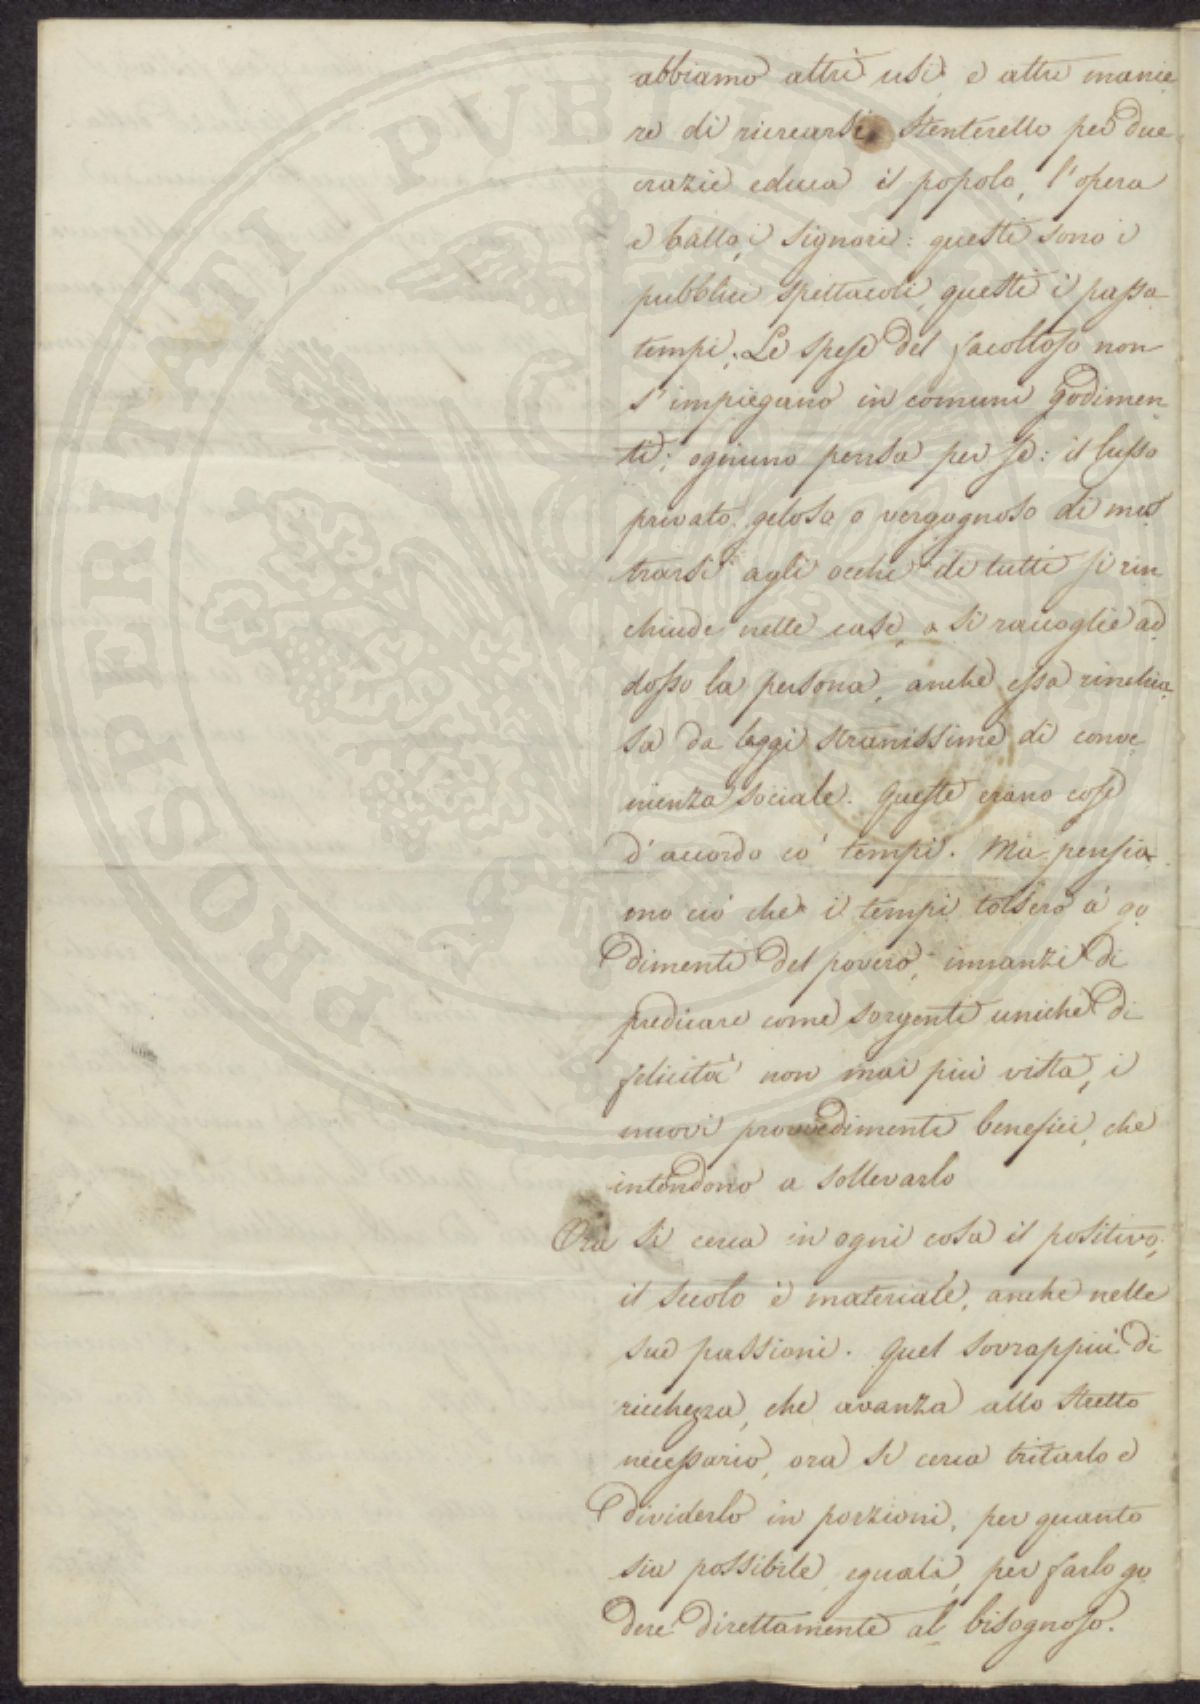 abbiamo altri usi, e altre manie
re di ricrearsi. Stenterello per due
crazie educa il popolo, l'opera
e ballo, i signori: questi sono i
pubblici spettacoli, questi i passa
tempi. Le spese del facoltoso non
s'impiegano in comuni godimen
ti; ognuno pensa per se: il lusso
privato, geloso o vergognoso di mos
trarsi agli occhi di tutti si rin
chiude nelle case, o si raccoglie ad
dosso la persona, anche essa rinchiu
sa da leggi stranissime di conve
nienza sociale. Queste erano cose
d'accordo co' tempi. Ma pensia
mo ciò che i tempi tolsero a' go
dimenti del povero, innanzi di
predicare come sorgenti uniche di
felicità non mai più vista, i
nuovi provvedimenti benefici, che
intendono a sollevarlo
Ora si cerca in ogni cosa il positivo,
il secolo è materiale, anche nelle
sue passioni. Quel sovrappiù di
ricchezza, che avanza allo stretto
necessario, ora si cerca tritarlo e
dividerlo in porzioni, per quanto
sia possibile, eguali, per farlo go
dere direttamente al bisognoso.
PROSPERITATI PVBLICAE